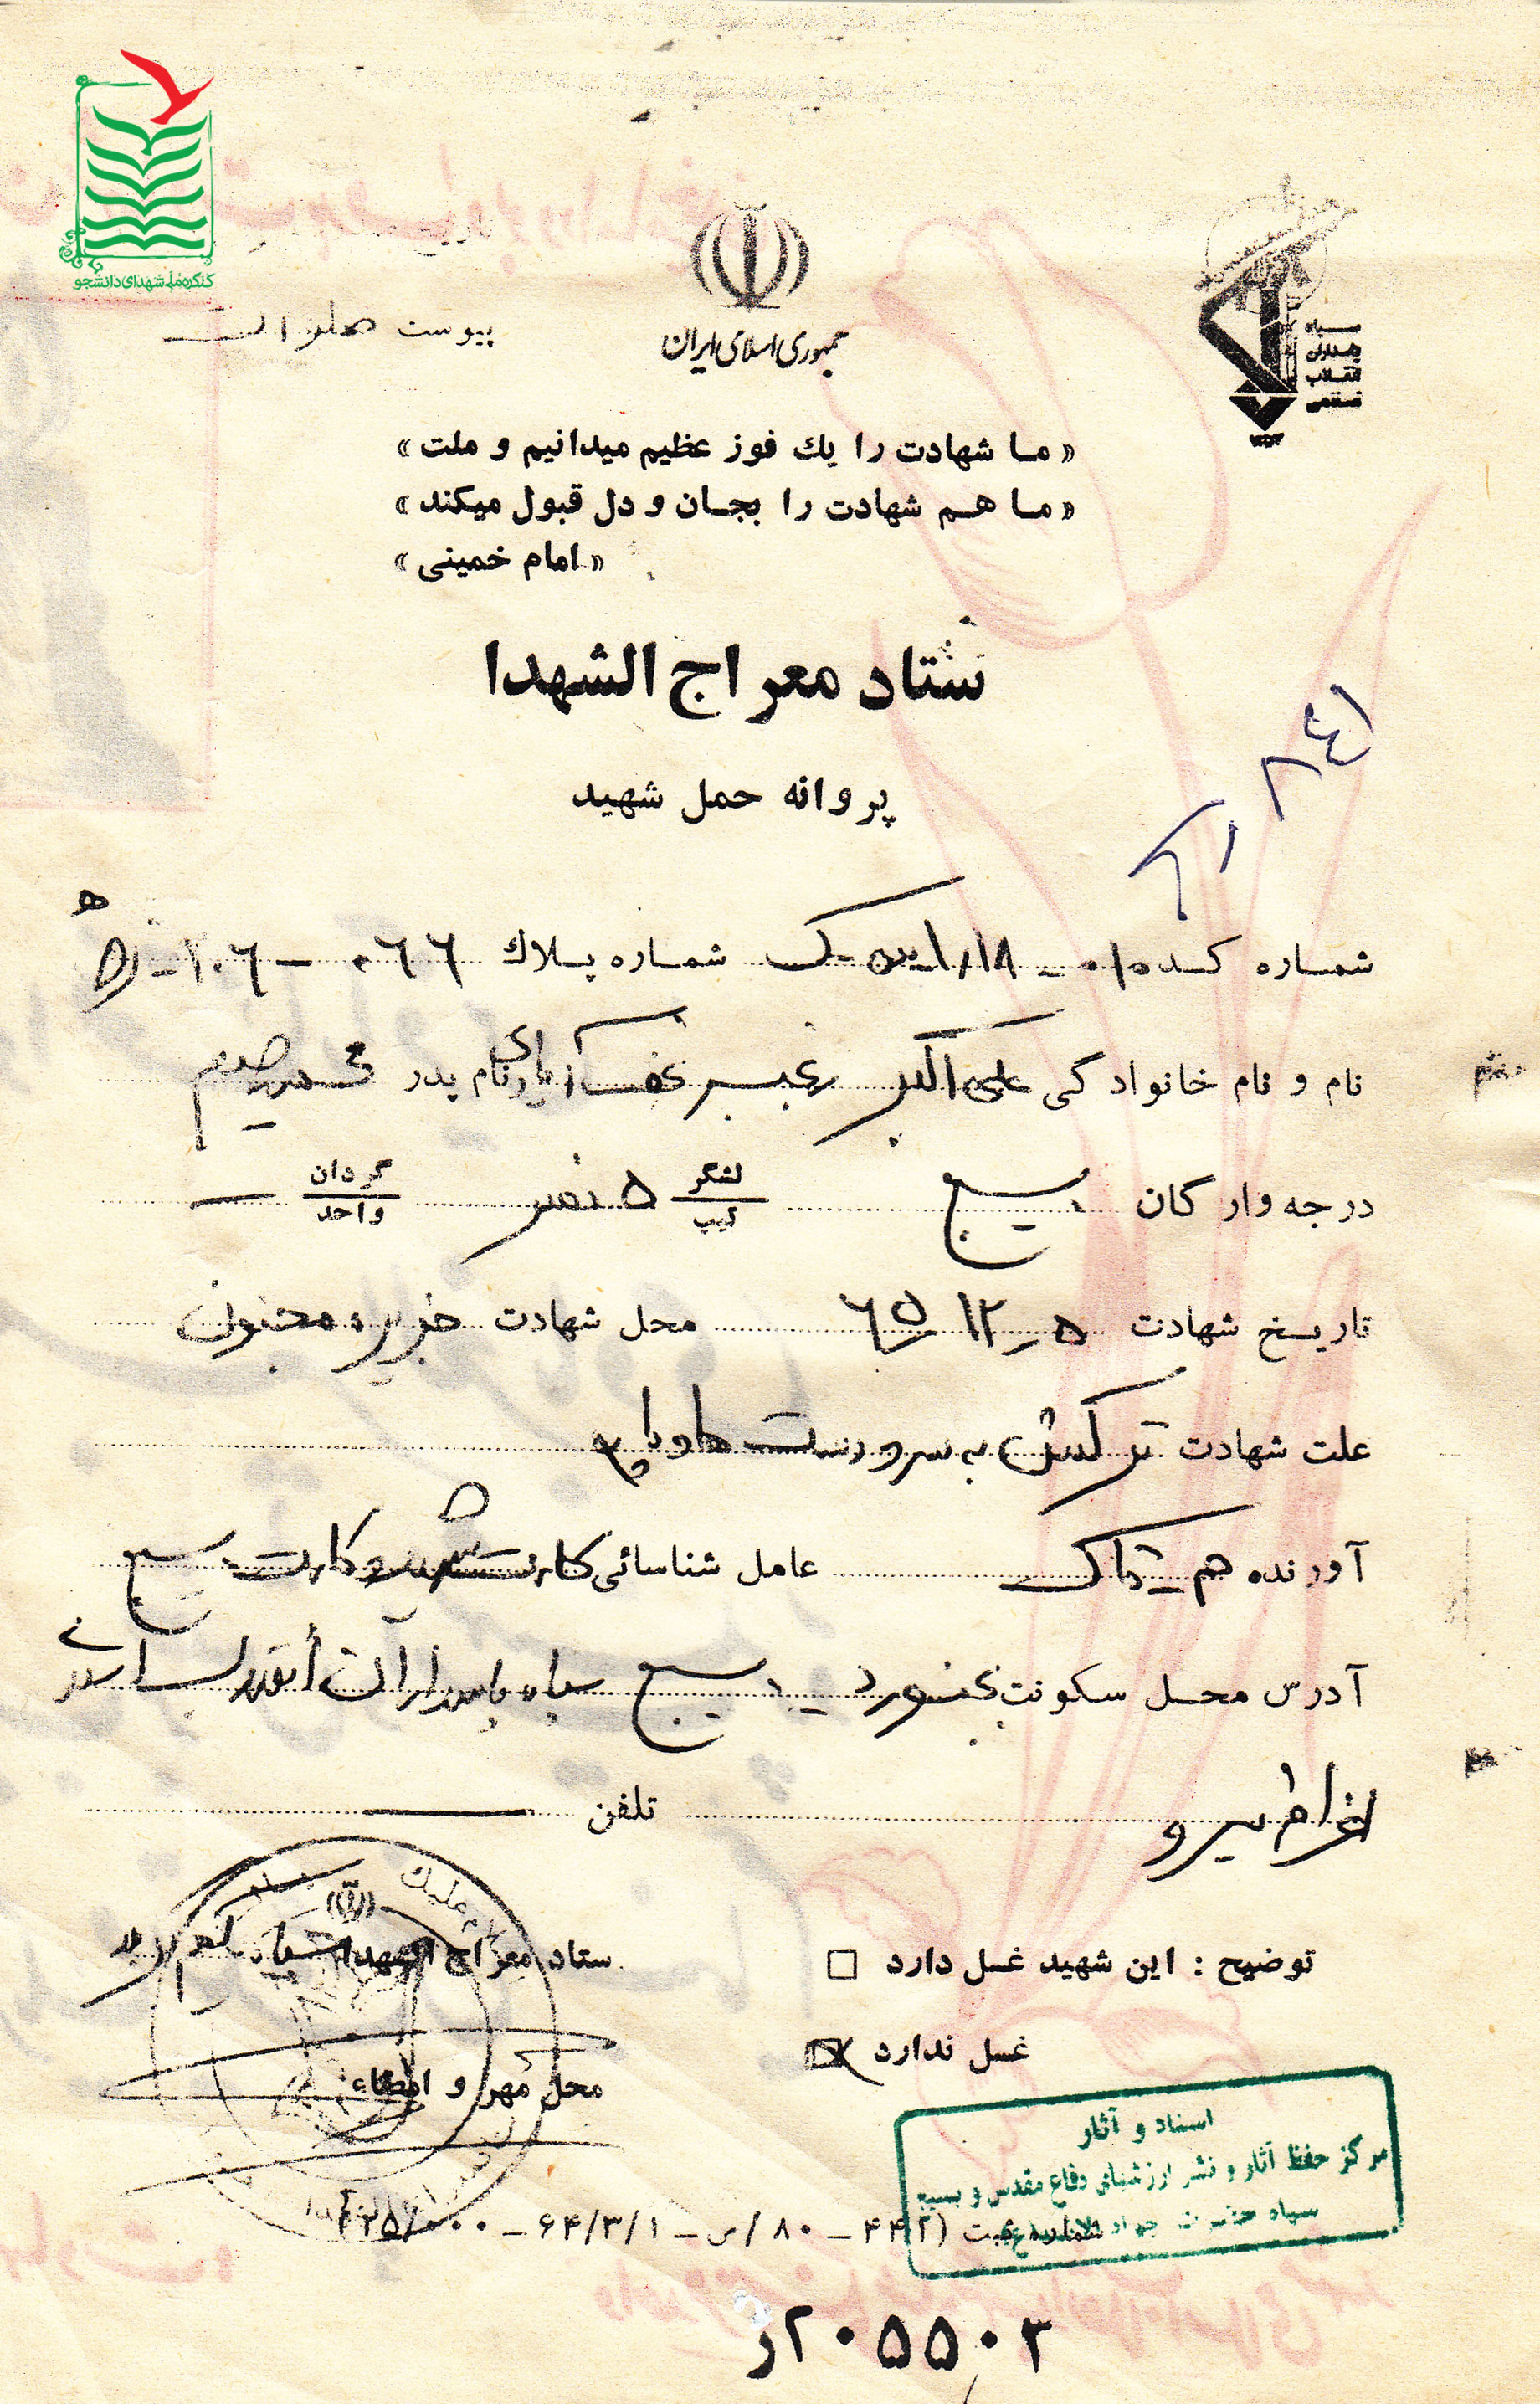 کنگره ملی شهدای دانشجو
پیوست
جمهوری اسلامی ایران
سپاه
پاسداران
انقلاب
اسلامی
« ما شهادت را یك فوز عظیم میدانیم و ملت »
« ما هم شهادت را بجان و دل قبول میکند »
« امام خمینی »
ستاد معراج الشهدا
پروانه حمل شهید
۸۴۱
شماره کد شماره پلاك ۰۶۶ – ۱۰۶
نام و نام خانوادگی علی اکبر نام پدر محمد رحیم
درجه وارگان بسیج لشگر تیپ ۵ نصر گردان واحد —
تاریخ شهادت ۵ ر ۱۲ ر ۶۵ محل شهادت جزیره مجنون
علت شهادت ترکش به سر و دست ها و پا
آورنده عامل شناسائی کارت شهید و کارت بسیج
آدرس محل سکونت بجنورد بسیج سپاه پاسداران
اعزام نیرو تلفن —
توضیح : این شهید غسل دارد □ ستاد معراج الشهداء
غسل ندارد
محل مهر و امضاء
اسناد و آثار
مرکز حفظ آثار و نشر ارزشهای دفاع مقدس و بسیج
سپاه حضرت جواد الائمه (ع)
شماره ثبت (۴۴۲ – ۸۰ /س – ۶۴/۳/۱ –
۲۰۵۵۰۳ر